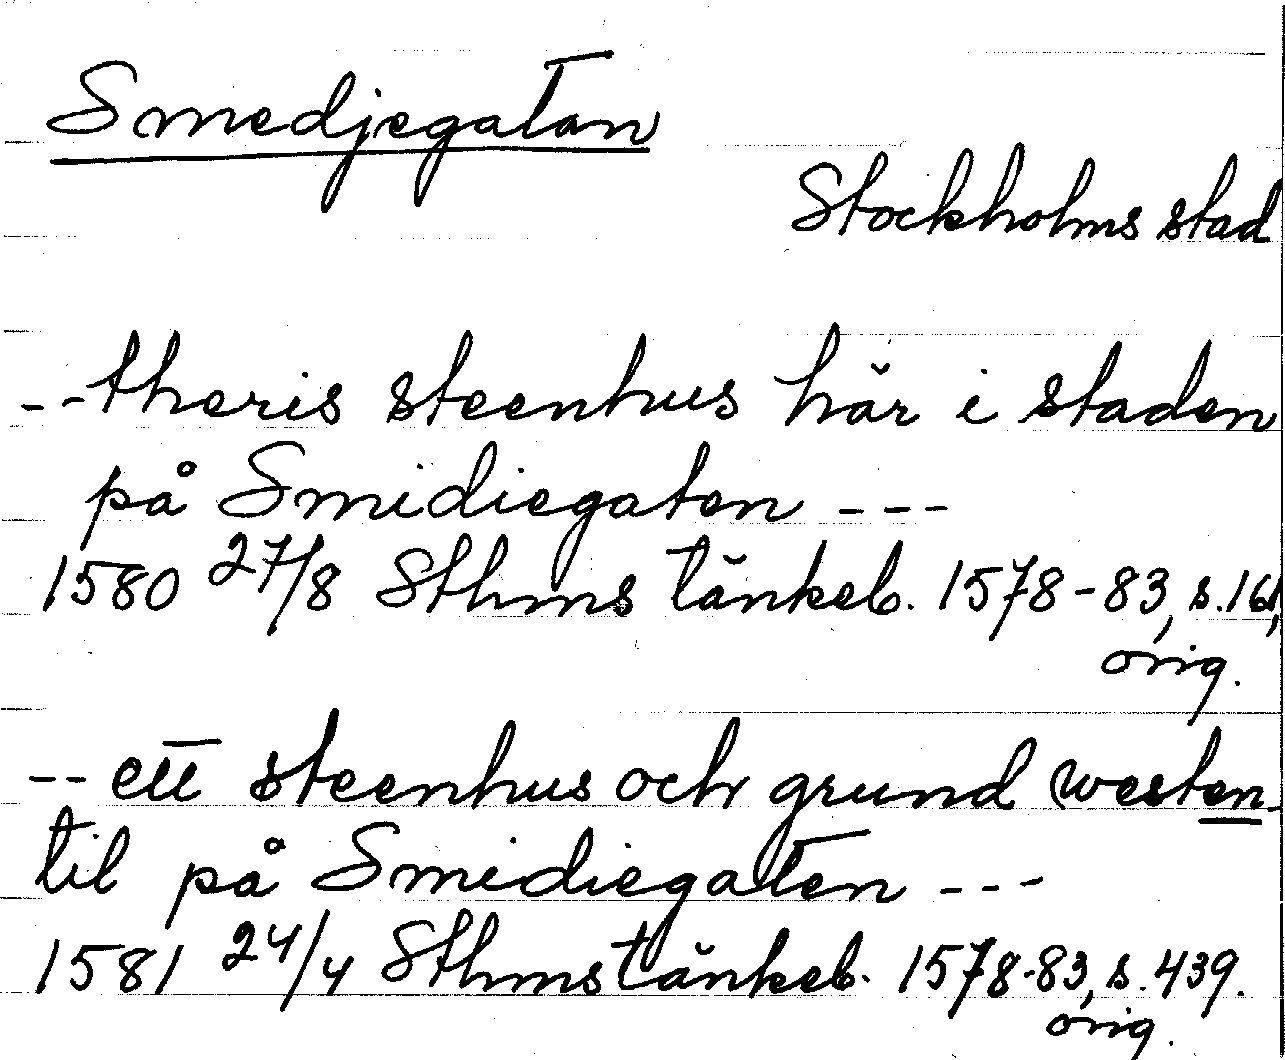 Smedjegatan
Stockholms stad
-- theris steenhus här i staden
på Smidiegaten ---
1580 27/8 Sthms tänkeb. 1578-83, s. 161,
orig.
-- ett steenhus och grund westen-
til på Smidiegaten ---
1581 24/4 Sthms tänkeb. 1578-83, s. 439.
orig.